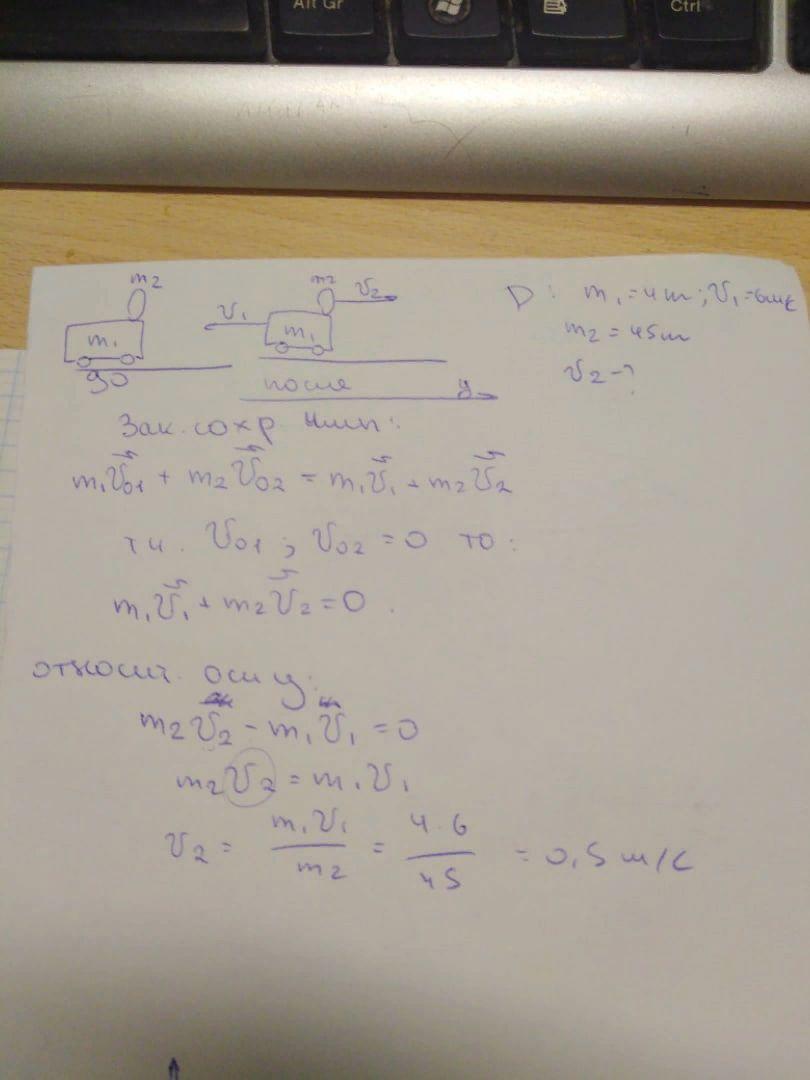 Alt Gr
Ctrl
m2
m2
V2
V1
m1
m1
до
после
y
D: m1=4m; V1=6m/c
m2=45m
V2-?
Зак. сохр. имп:
m1V01 + m2V02 = m1V1 + m2V2
т.к. V01; V02 = 0 то:
m1V1 + m2V2 = 0.
относит. оси y:
m2V2 - m1V1 = 0
m2V2 = m1V1
V2 = m1V1/m2 = 4·6/45 = 0,5 m/c